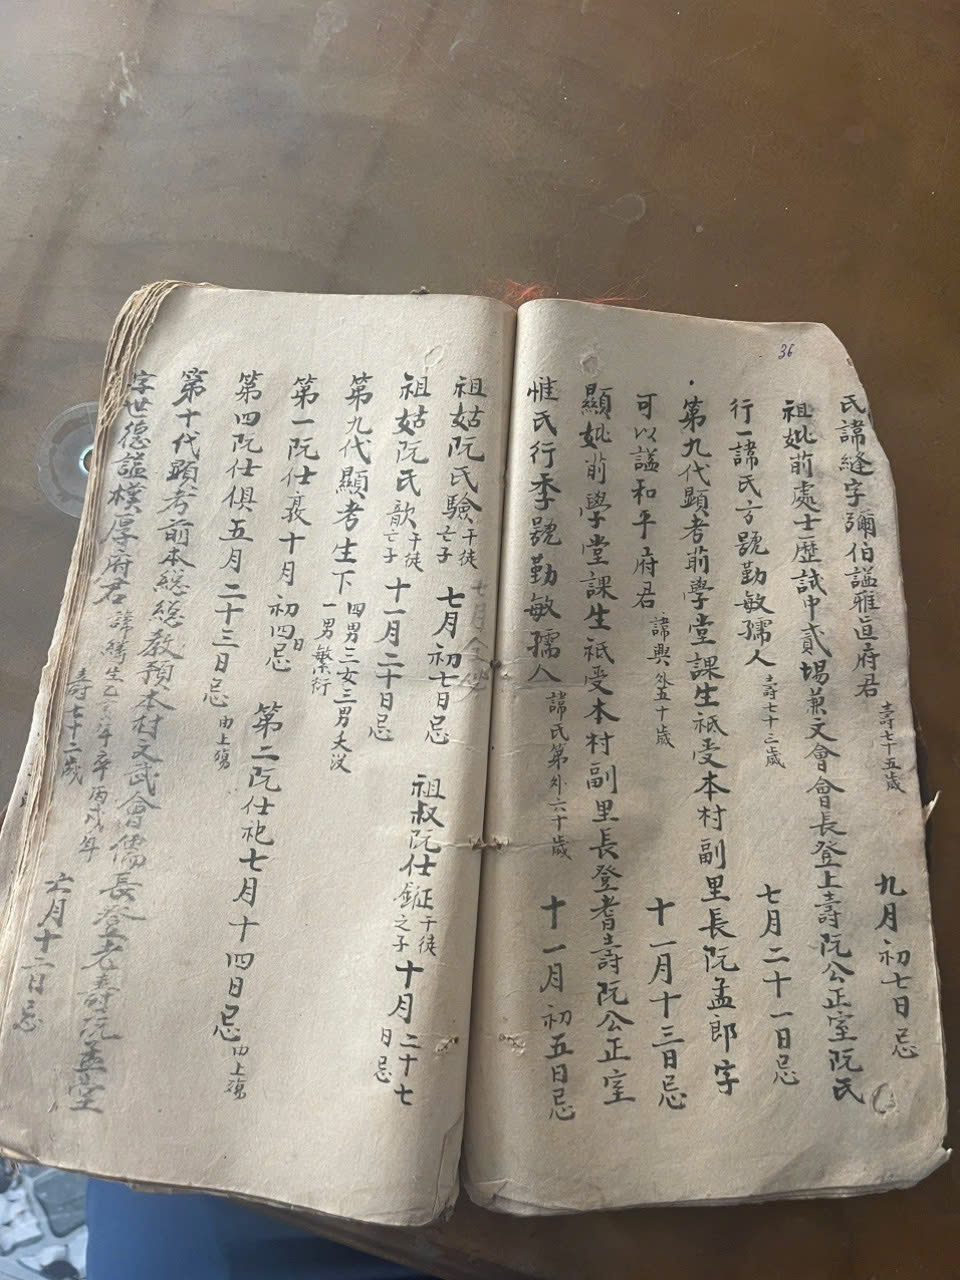 36
氏諱縫字彌伯謚雅直府君 壽七十五歲 九月初七日忌
祖妣前處士歷試中貳場兼文會會長登上壽阮公正室阮氏
行一諱氏方號勤敏孺人 壽七十三歲 七月二十一日忌
第九代顯考前學堂課生祇受本村副里長阮孟郎字
可以謚和平府君 諱興 外五十歲 十一月十三日忌
顯妣前學堂課生祇受本村副里長登耆壽阮公正室
惟氏行季號勤敏孺人 諱氏第 外六十歲 十一月初五日忌
祖姑阮氏驗 于徒亡子 七月初七日忌
祖姑阮氏歆 于徒亡子 十一月二十日忌 祖叔阮仕鉦 于徒之子 十月二十七日忌
第九代顯考生下 四男三女三男夭沒 一男繁衍
第一阮仕 十月初四日忌 第二阮仕祀七月十四日忌 由上殤
第四阮仕俱五月二十三日忌 由上殤
第十代顯考前本總總教預本村文武會儒長登老壽阮孟室
字世德謚樸厚府君 諱 生乙 年卒丙戌年 壽七十二歲 六月十二日忌